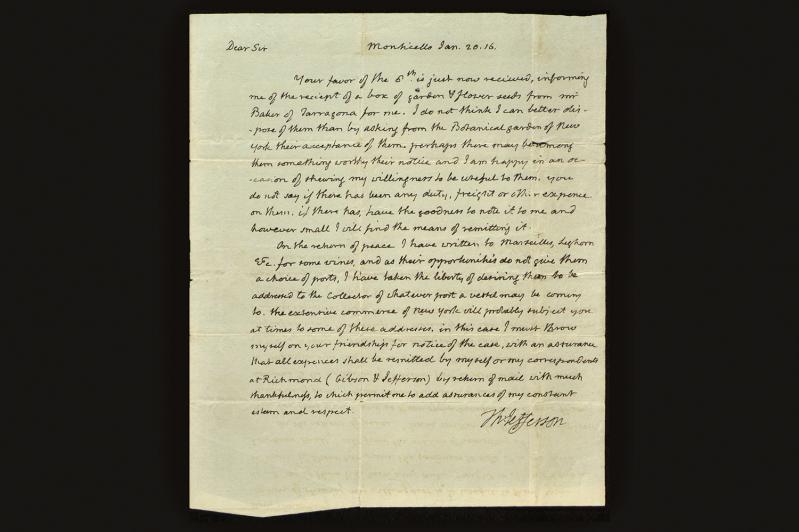 Dear Sir Monticello Jan. 20. 16.
Your favor of the 6th. is just now recieved, informing
me of the reciept of a box of garden & flower seeds from mr
Baker of Tarragona for me. I do not think I can better dis-
-pose of them than by asking from the Botanical garden of New
York their acceptance of them. perhaps there may be among
them something worthy their notice and I am happy in an oc-
-casion of shewing my willingness to be useful to them. you
do not say if there has been any duty, freight or other expence
on them. if there has, have the goodness to note it to me and
however small I will find the means of remitting it.
On the return of peace I have written to Marseilles, Leghorn
&c. for some wines, and as their opportunities do not give them
a choice of ports, I have taken the liberty of desiring them to be
addressed to the Collector of whatever port a vessel may be coming
to. the extensive commerce of New York will probably subject you
at times to some of these addresses. in this case I must throw
myself on your friendships for notice of the case, with an assurance
that all expences shall be remitted by myself or my correspondents
at Richmond (Gibson & Jefferson) by return of mail with much
thankfulness, to which permit me to add assurances of my constant
esteem and respect.
Th: Jefferson